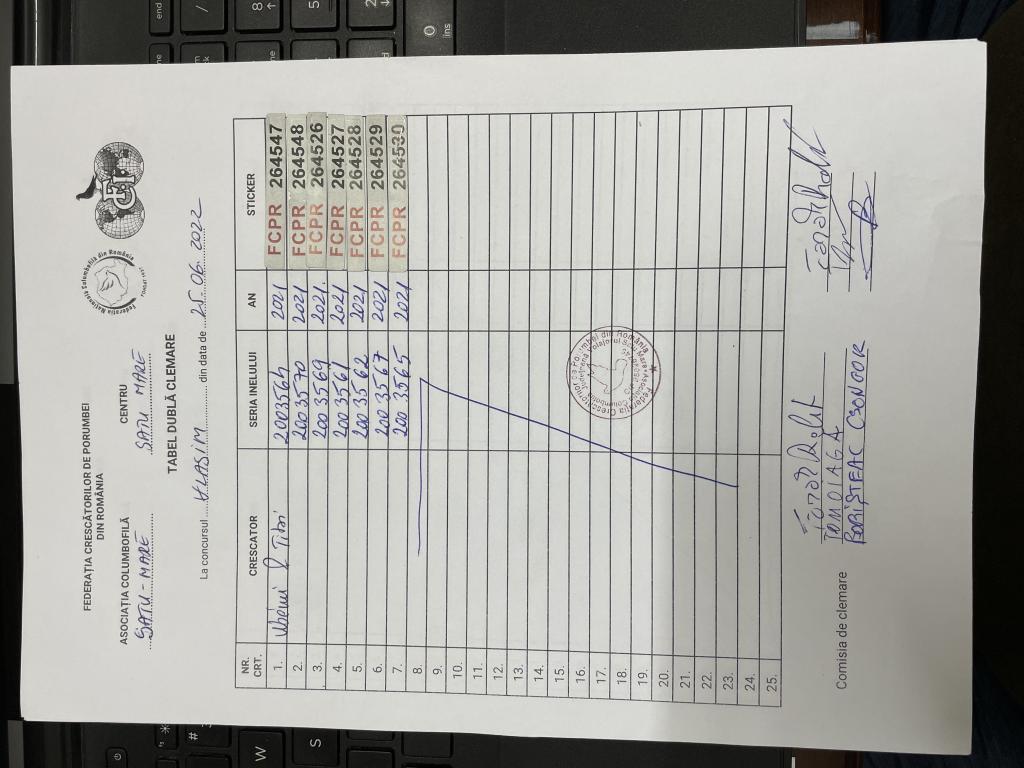 FEDERAȚIA CRESCĂTORILOR DE PORUMBEI
DIN ROMÂNIA
ASOCIAȚIA COLUMBOFILĂ CENTRU
SATU-MARE SATU MARE
TABEL DUBLĂ CLEMARE
La concursul VLASIM din data de 25.06.2022
NR. CRT. CRESCATOR SERIA INELULUI AN STICKER
1. 2003564 2021 FCPR 264547
2. 2003570 2021 FCPR 264548
3. 2003569 2021. FCPR 264526
4. 2003561 2021 FCPR 264527
5. 2003562 2021 FCPR 264528
6. 2003567 2021 FCPR 264529
7. 2003565 2021 FCPR 264530
8.
9.
10.
11.
12.
13.
14.
15.
16.
17.
18.
19.
20.
21.
22.
23.
24.
25.
Comisia de clemare
TOMOIAGA
BORIȘTEAC CSONGOR